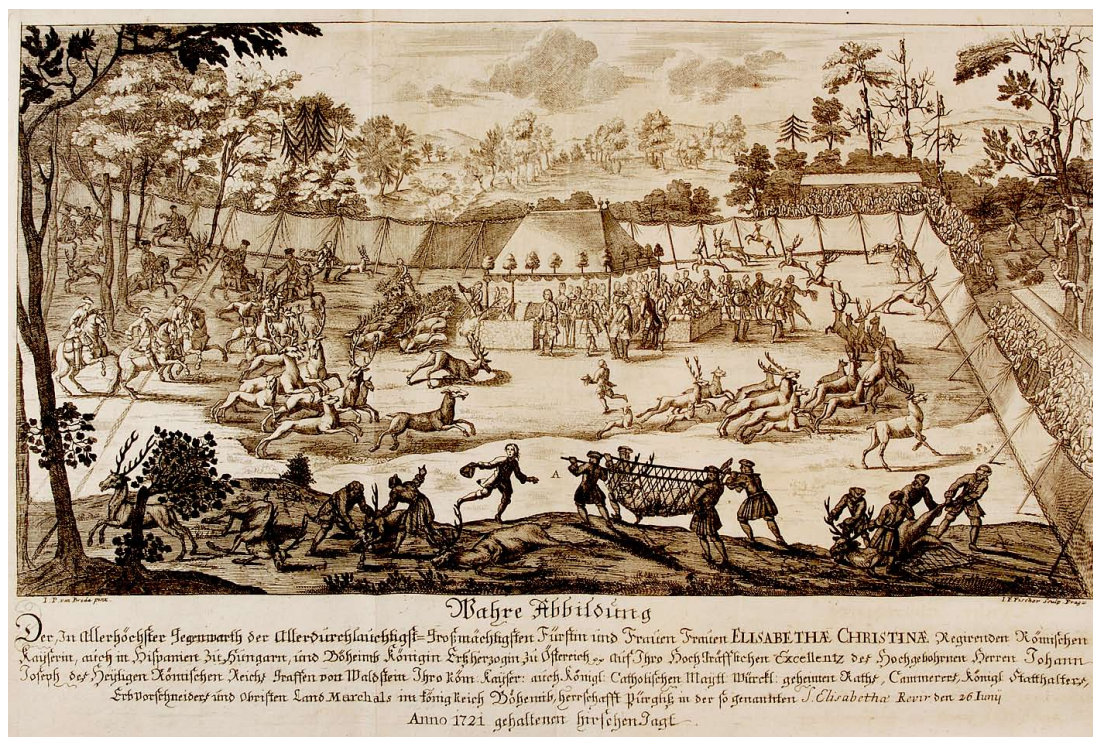 A
I. P. van Brede pinx.
I. F. Fischer Sculp. Pragæ
Wahre Abbildung
Der, In Allerhöchster Gegenwarth der Allerdurchlauchtigst=Großmächtigsten Fürstin und Frauen Frauen ELISABETHÆ CHRISTINÆ Regirenden Römischen
Kaÿserin, auch in Hispanien zu Hungarn, und Böheimb Königin Ertzherzogin zu Österreich Auf Ihro Hoch Gräfflichen Excellentz des Hochgebohrnen Herren Johann
Joseph des Heyligen Römischen Reichs Graffen von Waldstein Ihro Röm: Kaÿser: auch Königl: Catholischen Maÿtt. Würckl: geheimen Raths, Cammerers, Königl Statthalters,
Erbvorschneiders und Obristen Land Marchals im Königkeich Böheimb, herrschafft Pürglitz in der so genannten S. Elisabethæ Revir den 26 Iunij
Anno 1721 gehaltenen hirschen Jagt